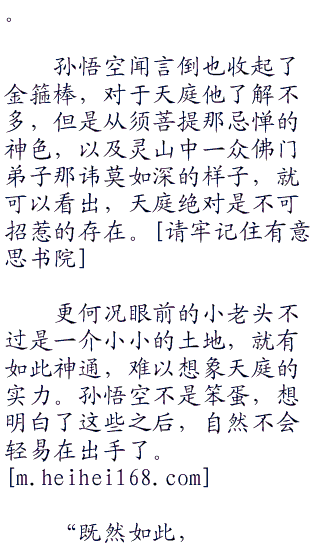 。
孙悟空闻言倒也收起了
金箍棒，对于天庭他了解不
多，但是从须菩提那忌惮的
神色，以及灵山中一众佛门
弟子那讳莫如深的样子，就
可以看出，天庭绝对是不可
招惹的存在。[请牢记住有意
思书院]
更何况眼前的小老头不
过是一介小小的土地，就有
如此神通，难以想象天庭的
实力。孙悟空不是笨蛋，想
明白了这些之后，自然不会
轻易在出手了。
[m.heihei168.com]
“既然如此，